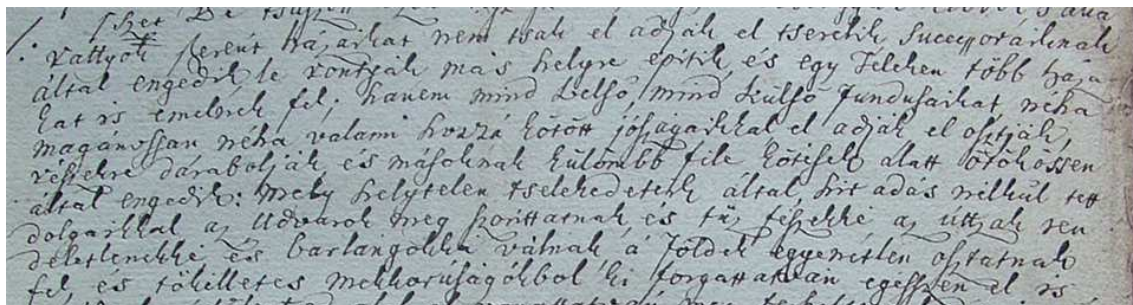 vattyok szerént házaikat nem tsak el adják el tserélik Successoráiknak
által engedik le rontyák más helyre építik és egy Teleken több háza
kat is emelnek fel; hanem mind belső, mind külső fundusaikat néha
magánossan néha valami hozzá kötött jószágaikkal el adják el osztják,
részekre darabolják és másoknak külömbb féle kötések alatt örökössen
által engedik: mely helytelen tselekedetek által hír adás nélkül tett
dolgaikkal az Udvarok meg szoríttatnak és tűz fészekké az úttzák ren
deletlenekké és barlangokká válnak, a Földek egyenetlen osztatnak
fel, és tökélletes mekkoraságokbol ki forgattatván egésszen el is